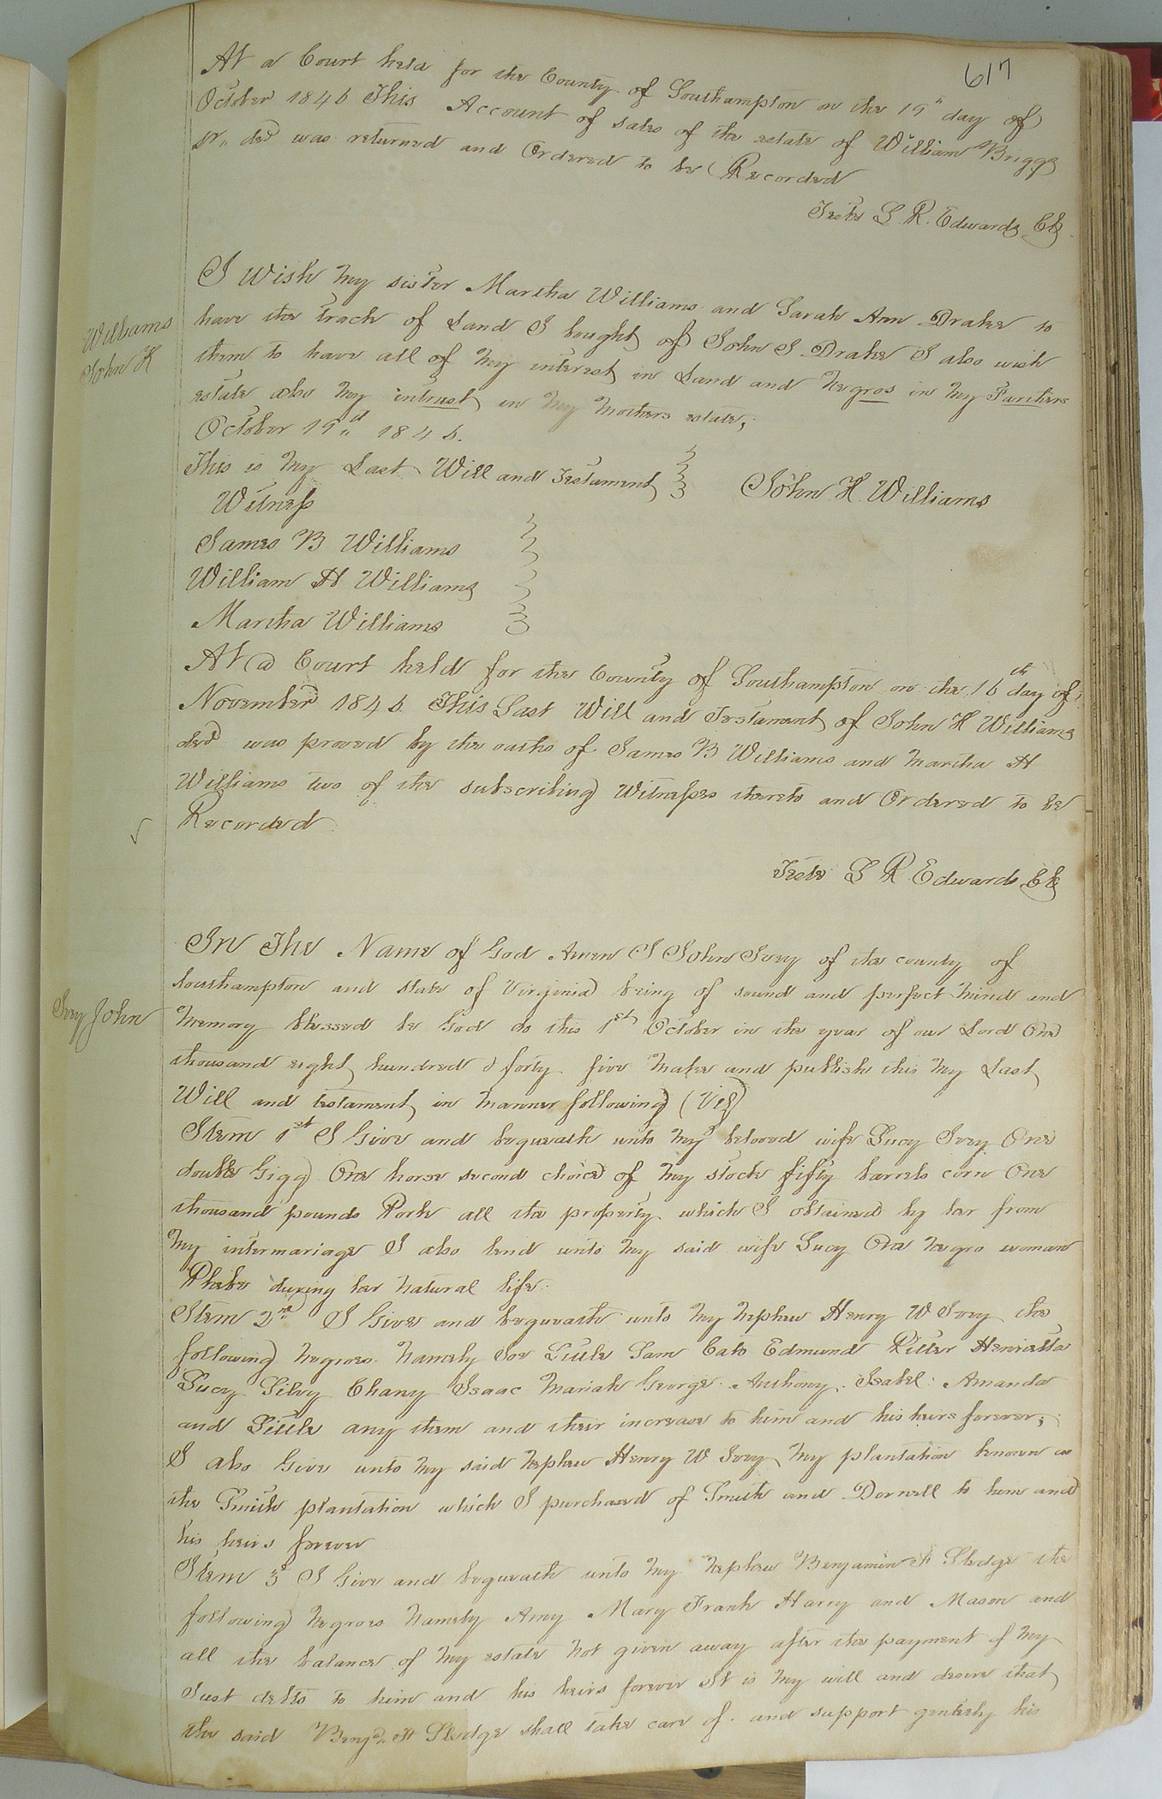 617
At a Court held for the County of Southampton on the 19th day of
October 1846 This Account of sales of the estate of William Briggs
Sr. decd was returned and Ordered to be Recorded
Teste L R. Edwards Clk
Williams
John H
I Wish my sister Martha Williams and Sarah Ann Drake to
have the track of Land I bought of John S Drake I also wish
them to have all of my interest in Land and negros in my Farthers
estate also my intrust in my mothers estate;
October 19th 1846.
This is my Last Will and Testament John H Williams
Witness
James B Williams
William H Williams
Martha Williams
At a Court held for the County of Southampton on the 16th day of
November 1846 This Last Will and Testament of John H Williams
decd was proved by the oaths of James B Williams and Martha H
Williams two of the subscribing Witnesses thereto and Ordered to be
Recorded
Teste L R Edwards Clk
Ivey John
In The Name of God Amen I John Ivey of the county of
Southampton and state of Virginia being of sound and perfect mind and
memory blessed be God do this 1st October in the year of our Lord One
thousand eight hundred & forty five make and publish this my Last
Will and testament in manner following (Viz)
Item 1st I Give and bequeath unto my beloved wife Lucy Ivey One
double Gigg One horse second choice of my stock fifty barrels corn One
thousand pounds Pork all the property which I obtained by her from
my intermariage I also lend unto my said wife Lucy One negro woman
Phebe during her natural life.
Item 2nd I Give and bequeath unto my nephew Henry W Ivey the
following negroes namely Joe Little Sam Cato Edmund Ritter Henrietta
Lucy Silvy Chany Isaac Mariah George Anthony Isabel Amanda
and Little any them and their increase to him and his heirs forever;
I also Give unto my said nephew Henry W Ivey my plantation known as
the Smith plantation which I purchased of Smith and Dorrell to him and
his heirs forever
Item 3d I Give and bequeath unto my nephew Benjamin H Sledge the
following negroes namely Amy Mary Frank Harry and Mason and
all the balance of my estate not given away after the payment of my
Just debts to him and his heirs forever It is my will and desire that
the said Benja H Sledge shall take care of and support genteely his